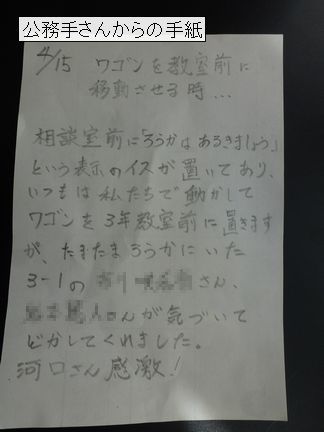 公務手さんからの手紙
4/15 ワゴンを教室前に
移動させる時…
相談室前に「ろうかはあるきましょう」
という表示のイスが置いてあり、
いつもは私たちで動かして
ワゴンを3年教室前に置きます
が、たまたまろうかにいた
3-1の さん、
さんが気づいて
どかしてくれました。
河口さん感激!